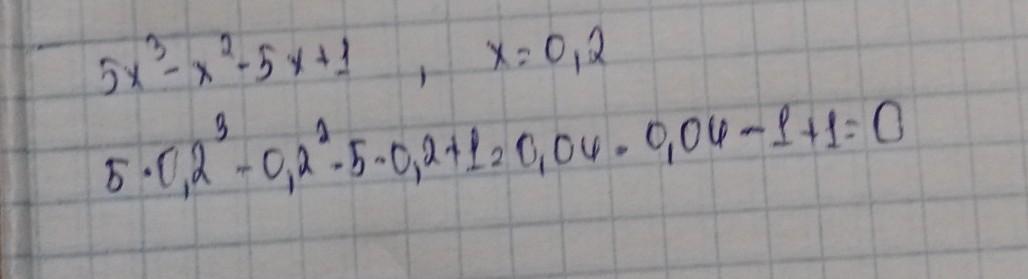 5x³ - x² - 5x + 1 , x = 0,2
5 · 0,2³ - 0,2² - 5 · 0,2 + 1 = 0,04 - 0,04 - 1 + 1 = 0